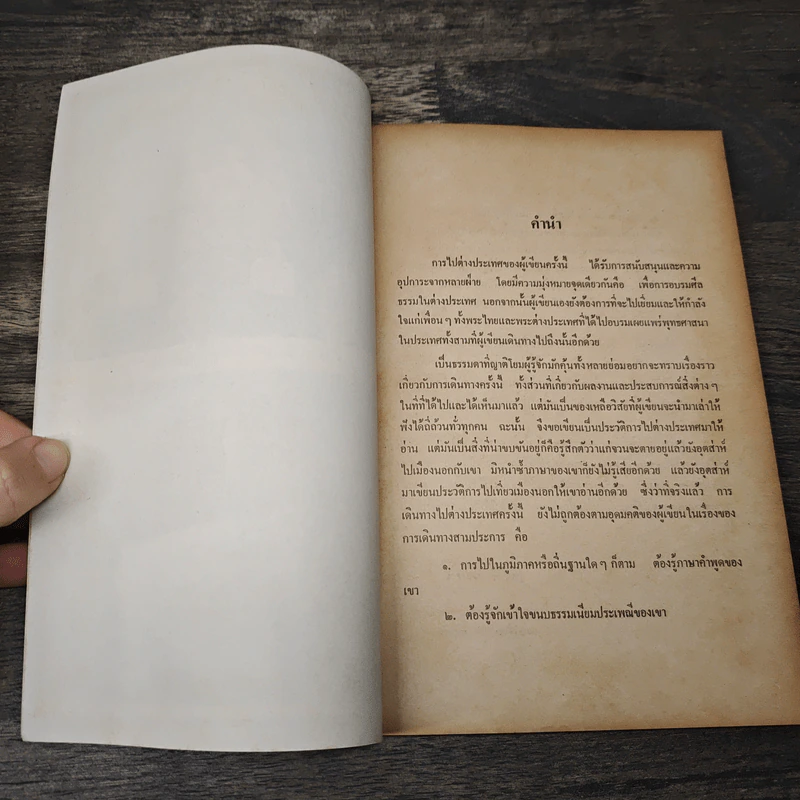 คำนำ
การไปต่างประเทศของผู้เขียนครั้งนี้ ได้รับการสนับสนุนและความ
อุปการะจากหลายฝ่าย โดยมีความมุ่งหมายจุดเดียวกันคือ เพื่อการอบรมศีล
ธรรมในต่างประเทศ นอกจากนั้นผู้เขียนเองยังต้องการที่จะไปเยี่ยมและให้กำลัง
ใจแก่เพื่อน ๆ ทั้งพระไทยและพระต่างประเทศที่ได้ไปอบรมเผยแพร่พุทธศาสนา
ในประเทศทั้งสามที่ผู้เขียนเดินทางไปถึงนั้นอีกด้วย
เป็นธรรมดาที่ญาติโยมผู้รู้จักมักคุ้นทั้งหลายย่อมอยากจะทราบเรื่องราว
เกี่ยวกับการเดินทางครั้งนี้ ทั้งส่วนที่เกี่ยวกับผลงานและประสบการณ์สิ่งต่าง ๆ
ในที่ที่ได้ไปและได้เห็นมาแล้ว แต่มันเป็นของเหลือวิสัยที่ผู้เขียนจะนำมาเล่าให้
ฟังได้ถี่ถ้วนทั่วทุกคน ฉะนั้น จึงขอเขียนเป็นประวัติการไปต่างประเทศมาให้
อ่าน แต่มันเป็นสิ่งที่น่าขบขันอยู่ก็คือรู้สึกตัวว่าแก่จวนจะตายอยู่แล้วยังอุตส่าห์
ไปเมืองนอกกับเขา มิหนำซ้ำภาษาของเขาก็ยังไม่รู้เสียอีกด้วย แล้วยังอุตส่าห์
มาเขียนประวัติการไปเที่ยวเมืองนอกให้เขาอ่านอีกด้วย ซึ่งว่าที่จริงแล้ว การ
เดินทางไปต่างประเทศครั้งนี้ ยังไม่ถูกต้องตามอุดมคติของผู้เขียนในเรื่องของ
การเดินทางสามประการ คือ
๑. การไปในภูมิภาคหรือถิ่นฐานใด ๆ ก็ตาม ต้องรู้ภาษาคำพูดของ
เขา
๒. ต้องรู้จักเข้าใจขนบธรรมเนียมประเพณีของเขา